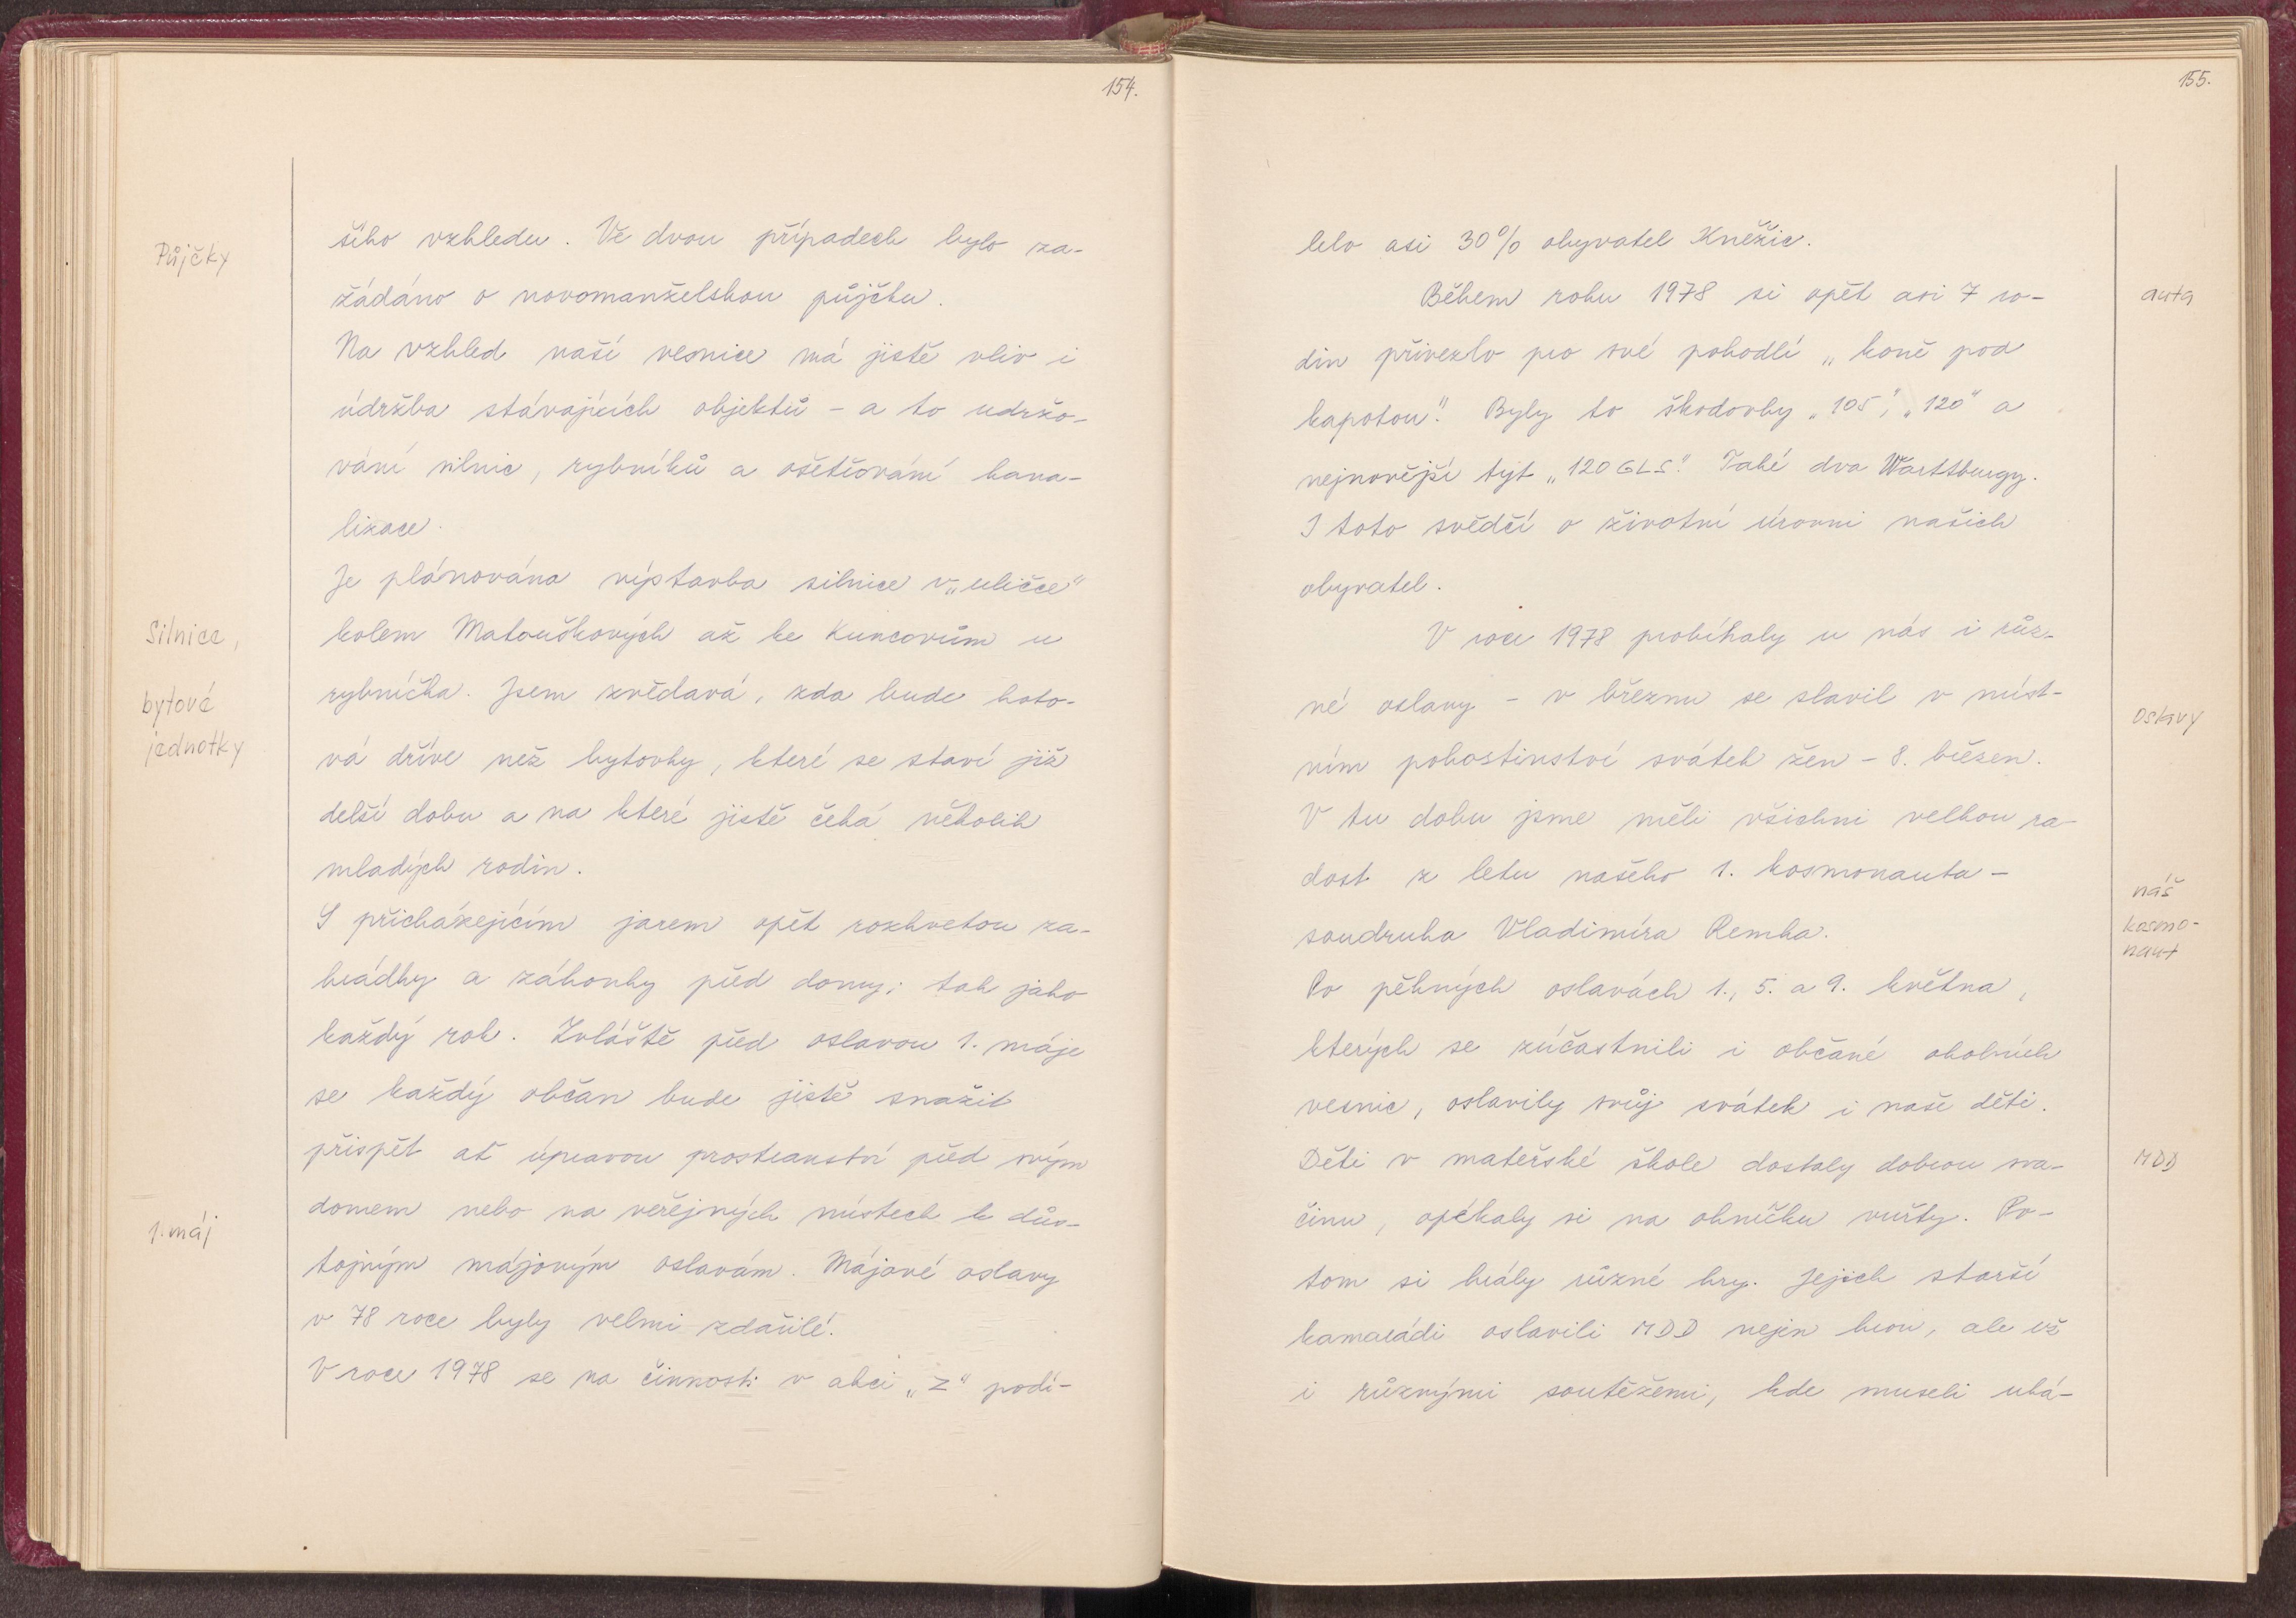 154.
Půjčky
šího vzhledu. Ve dvou případech bylo za-
žádáno o novomanželskou půjčku.
Na vzhled naší vesnice má jistě vliv i
údržba stávajících objektů - a to udržo-
vání silnic, rybníků a ošetřování kana-
lizace.
Je plánována výstavba silnice v „uličce"
Silnice,
kolem Matouškových až ke Kuncovům u
bytové
rybníčka. Jsem zvědavá, zda bude hoto-
jednotky
vá dříve než bytovky, které se staví již
delší dobu a na které jistě čeká několik
mladých rodin.
S přicházejícím jarem opět rozkvetou za-
hrádky a záhonky před domy; tak jako
každý rok. Zvláště před oslavou 1. máje
se každý občan bude jistě snažit
přispět ať úpravou prostranství před svým
domem nebo na veřejných místech k důs-
1. máj
tojným májovým oslavám. Májové oslavy
v 78 roce byly velmi zdařilé.
V roce 1978 se na činnosti v akci „Z" podí-
155.
lelo asi 30% obyvatel Kněžic.
Během roku 1978 si opět asi 7 ro-
auta
din přivezlo pro své pohodlí „koně pod
kapotou". Byly to škodovky „105", „120" a
nejnovější typ „120 GLS". Také dva Warttburgy.
I toto svědčí o životní úrovni našich
obyvatel.
V roce 1978 probíhaly u nás i růz-
né oslavy - v březnu se slavil v míst-
oslavy
ním pohostinství svátek žen - 8. březen.
V tu dobu jsme měli všichni velkou ra-
dost z letu našeho 1. kosmonauta -
náš
kosmo-
naut
soudruha Vladimíra Remka.
Po pěkných oslavách 1., 5. a 9. května,
kterých se zúčastnili i občané okolních
vesnic, oslavily svůj svátek i naše děti.
Děti v mateřské škole dostaly dobrou sva-
MDD
činu, opékaly si na ohníčku vuřty. Po-
tom si hrály různé hry. Jejich starší
kamarádi oslavili MDD nejen hrou, ale už
i různými soutěžemi, kde museli uká-